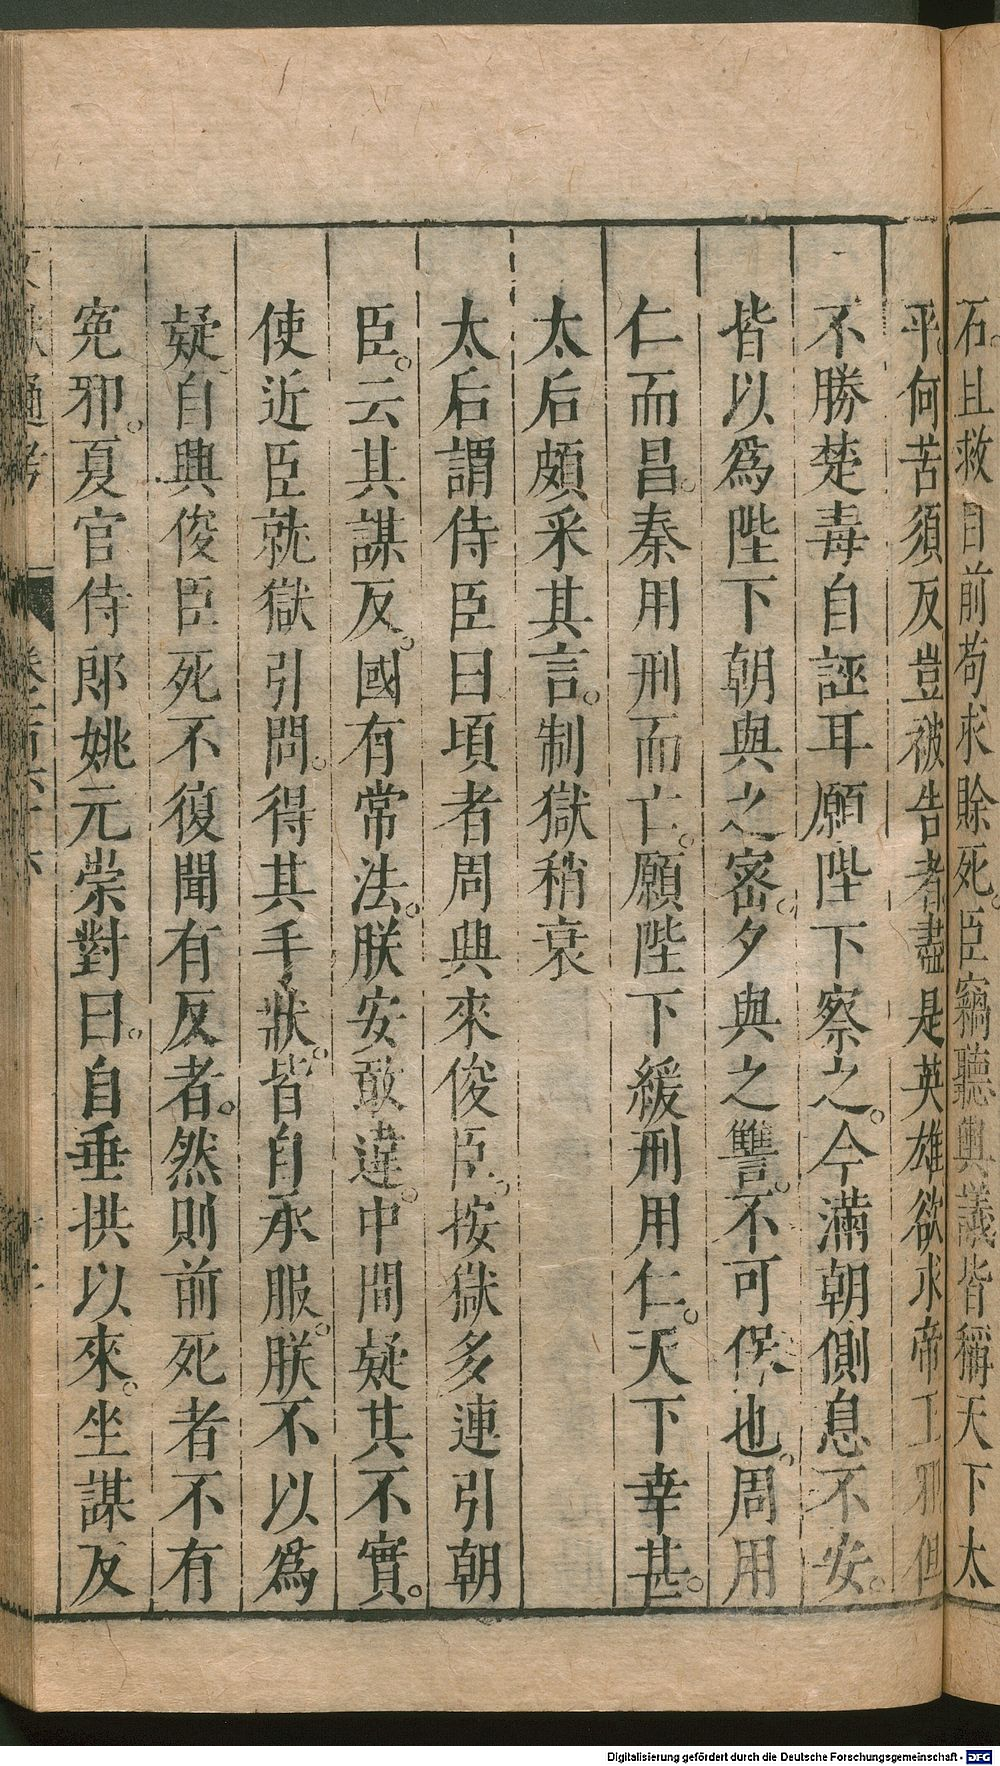 石。且救目前苟求賒死。臣竊聽輿議皆稱天下太
平。何苦須反豈被告者盡是英雄欲求帝王邪但
不勝楚毒自誣耳願陛下察之。今滿朝側息不安。
皆以爲陛下朝與之密。夕與之讐。不可保也。周用
仁而昌。秦用刑而亡。願陛下緩刑用仁。天下幸甚。
太后頗采其言。制獄稍衰
太后謂侍臣曰頃者周興來俊臣。按獄多連引朝
臣。云其謀反。國有常法。朕安敢違。中間疑其不實。
使近臣就獄引問。得其手狀。皆自承服。朕不以爲
疑自興俊臣死不復聞有反者。然則前死者不有
寃邪。夏官侍郎姚元崇對曰。自垂拱以來。坐謀反
通考
Digitalisierung gefördert durch die Deutsche Forschungsgemeinschaft - DFG